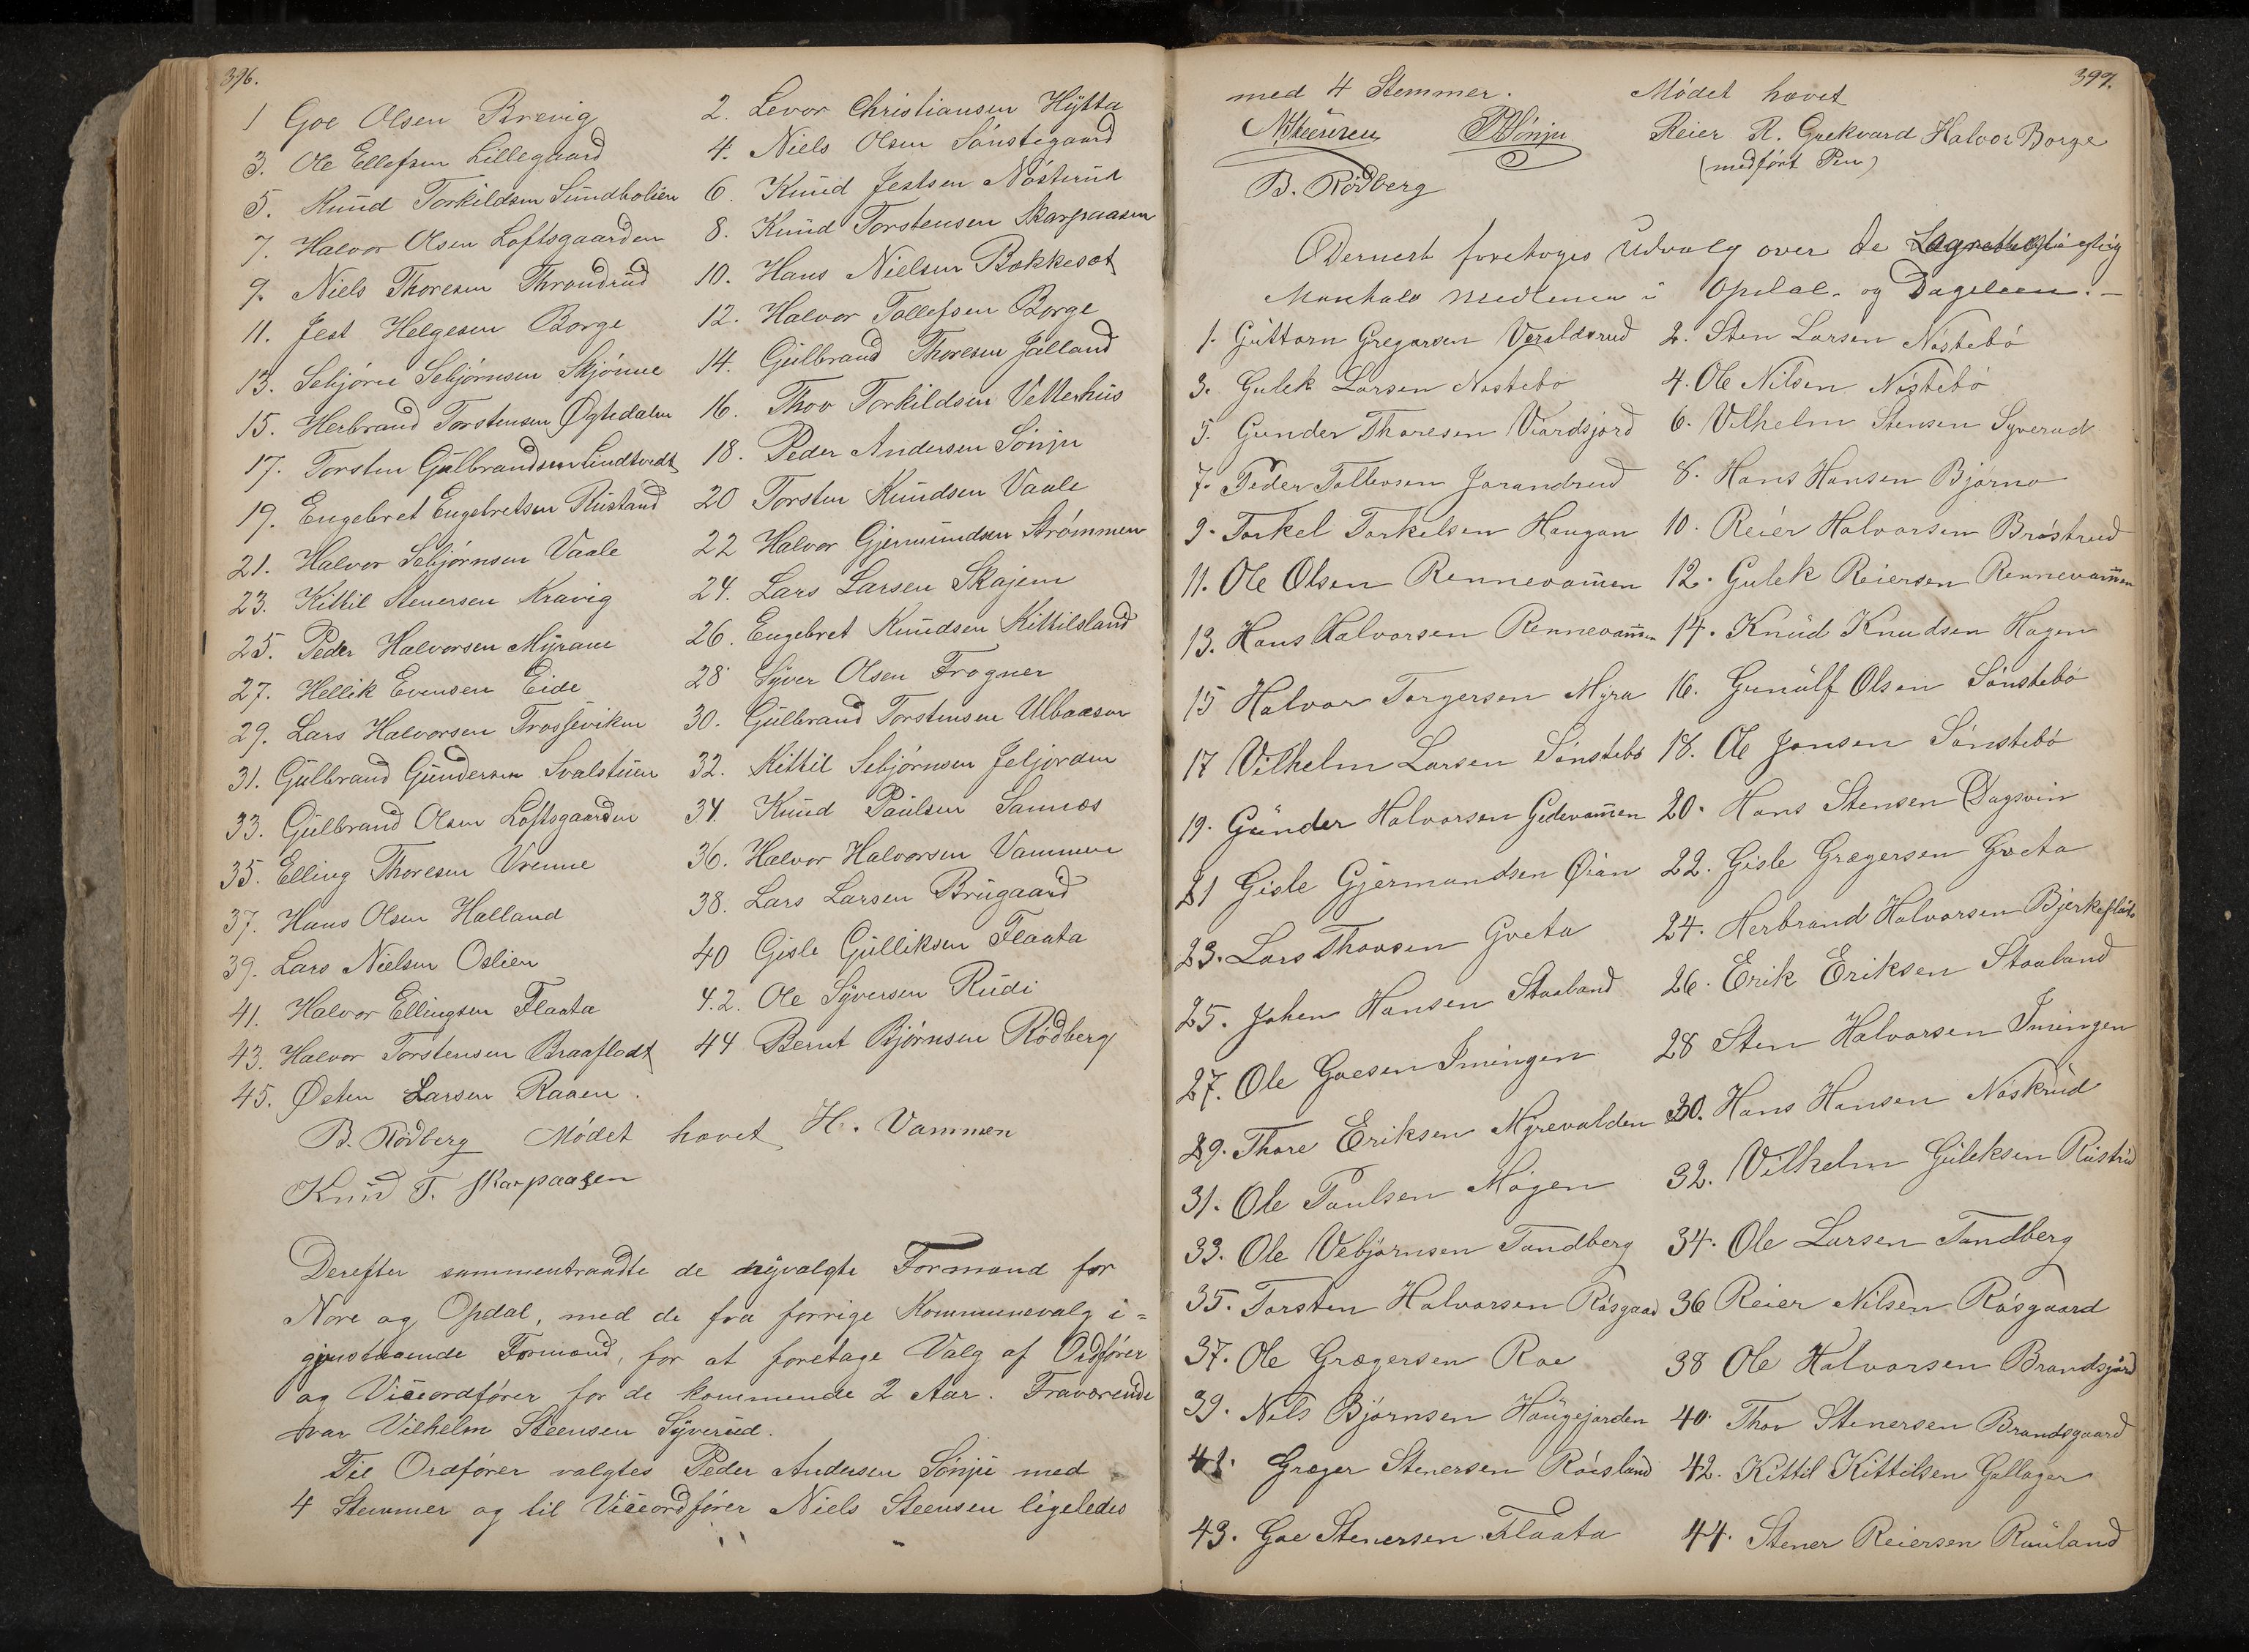 396.
1 Goe Olsen Brevig 2. Levor Christiansen Hÿtta
3. Ole Ellefsen Lillegaard 4. Niels Olsen Sönstegaard
5. Knud Torkildsen Sundbolien 6. Knud Jestsen Nösterud
7. Halvor Olsen Loftsgaarden 8. Knud Torstensen Skarpaasen
9. Niels Thoresen Throndrud 10. Hans Nielsen Bakkesæt
11. Jest Helgesen Borge 12. Halvor Tollefsen Borge
13. Sebjörn Sebjörnsen Skjönne 14. Gulbrand Thoresen Jalland
15. Herbrand Torstensen Øgtedalen 16. Thov Torkildsen Vetterhus
17. Torsten Gulbrandsen Lindtvedt 18. Peder Andersen Sönju
19. Engebret Engebretsen Rustand 20 Torsten Knudsen Vaale
21. Halvor Sebjörnsen Vaale 22 Halvor Gjermundsen Strömmen
23. Kittil Stenersen Kravig 24. Lars Larsen Skajem
25. Peder Halvorsen Mÿrane 26. Engebret Knudsen Kittilsland
27. Hellik Evensen Eide 28 Syver Olsen Frogner
29. Lars Halvorsen Trosseviken 30. Gulbrand Torstensen Ulbaasen
31. Gulbrand Gundersen Svalstuen 32. Kittil Sebjörnsen Jeljorden
33. Gulbrand Olsen Loftsgaarden 34. Knud Paulsen Sannæs
35. Elling Thoresen Vrenne 36. Halvor Halvorsen Vammen
37. Hans Olsen Halland 38. Lars Larsen Brugaard
39. Lars Nielsen Oslien 40 Gisle Gulliksen Flaata
41. Halvor Ellingsen Flaata 42. Ole Sÿversen Rudi
43. Halvor Torstensen Braaflodt 44 Bernt Björnsen Rödberg
45. Østen Larsen Raaen.
B. Rödberg Mödet hævet H. Vammen
Knud T. Skarpaasen
Derefter sammentraadte de nÿvalgte Formænd for
Nore og Opdal, med de fra forrige Kommunevalg i=
gjenstaaende Formænd, for at foretage Valg af Ordförer
og Viceordförer for de kommende 2 Aar. Fraværende
var Vilhelm Steensen Sÿverud.
Til Ordförer valgtes Peder Andersen Sönju med
4 Stemmer og til Viceordförer Niels Steensen ligeledes
397.
med 4 Stemmer. Mödet hævet
NSteensen PASönju Reier R. Grekvard Halvor Borge
(medfört Pen)
B. Rödberg
Dernest foretoges Udvalg over de
Mandtals medlemer i Opdal og Dagalien.
1. Guttorn Gregarsen Veraldsrud 2. Sten Larsen Nöstebö
3. Gulek Larsen Nöstebö 4. Ole Nilsen Nöstebö
5. Gunder Thoresen Viardsjord 6. Vilhelm Stensen Syverud
7. Peder Tollevsen Jarandrud 8. Hans Hansen Björnø
9. Torkel Torkelsen Haugan 10. Reier Halvorsen Bröstrud
11. Ole Olsen Rennevam̄en 12. Gulek Reiersen Rennevam̄en
13. Hans Halvorsen Rennevam̄en 14. Knud Knudsen Hagen
15 Halvor Torgersen Myra 16. Gunulf Olsen Sönstebö
17 Vilhelm Larsen Sönstebö 18. Ole Jonsen Sönstebö
19. Gunder Halvorsen Gedevam̄en 20. Hans Stensen Dagsvin
21 Gisle Gjermundsen Øian 22. Gisle Grægersen Gveta
23. Lars Thovsen Gveta 24. Herbrand Halvorsen Bjerkeflåt
25. Johen Hansen Staaland 26. Erik Eriksen Staaland
27. Ole Goesen Imingen 28 Sten Halvorsen Imingen
29. Thore Eriksen Myrevolden 30. Hans Hansen Nöskrud
31. Ole Paulsen Mogen 32. Vilhelm Guleksen Rustud
33. Ole Vebjörnsen Tandberg 34. Ole Larsen Tandberg
35. Torsten Halvorsen Rösgaard 36 Reier Nilsen Rösgaard
37. Ole Grægersen Roe 38 Ole Halvorsen Brandsjord
39. Nils Björnsen Haugejorden 40. Thov Stenersen Brandsgaard
41. Græger Stenersen Röisland 42. Kittil Kittilsen Gallager
43. Goe Stenersen Flaata 44. Stener Reiersen Rauland